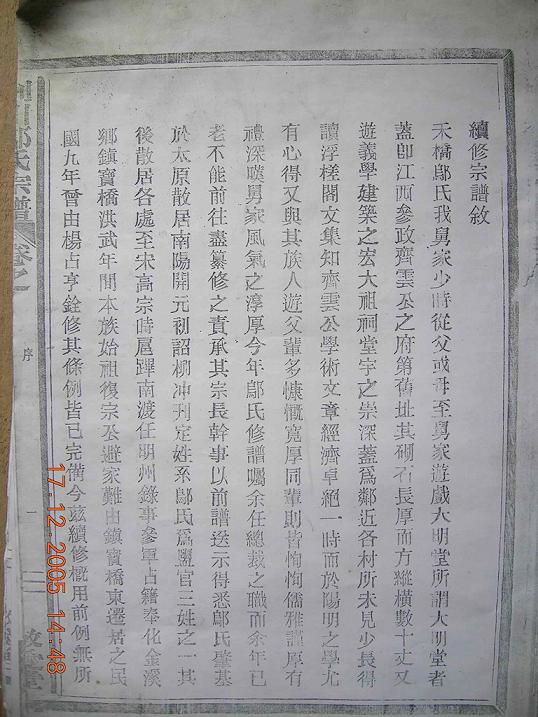 續修宗譜敘
禾橋鄔氏我舅家少時從父或母至舅家遊戲大明堂所謂大明堂者
蓋即江西參政齊雲公之府第舊址其砌石長厚而方縱橫數十丈又
遊義學建築之宏大祖祠堂宇之崇深蓋爲鄰近各村所未見少長得
讀浮槎閣文集知齊雲公學術文章經濟卓絕一時而於陽明之學尤
有心得又與其族人遊父輩多慷慨寬厚同輩則皆恂恂儒雅謹厚有
禮深嘆舅家風氣之淳厚今年鄔氏修譜囑余任總裁之職而余年已
老不能前往盡纂修之責承其宗長幹事以前譜送示得悉鄔氏肇基
於太原散居南陽開元初詔柳冲刊定姓系鄔氏爲豐官三姓之一其
後散居各處至宋高宗時扈蹕南渡任明州錄事參軍占籍奉化金溪
鄉鎮寶橋洪武年間本族始祖復宗公避家難由鎮寶橋東遷居之民
國九年曾由楊占亨銓修其條例皆已完備今兹續修概用前例無所
氏宗譜
卷之
序
一
17.12.2005 14:48